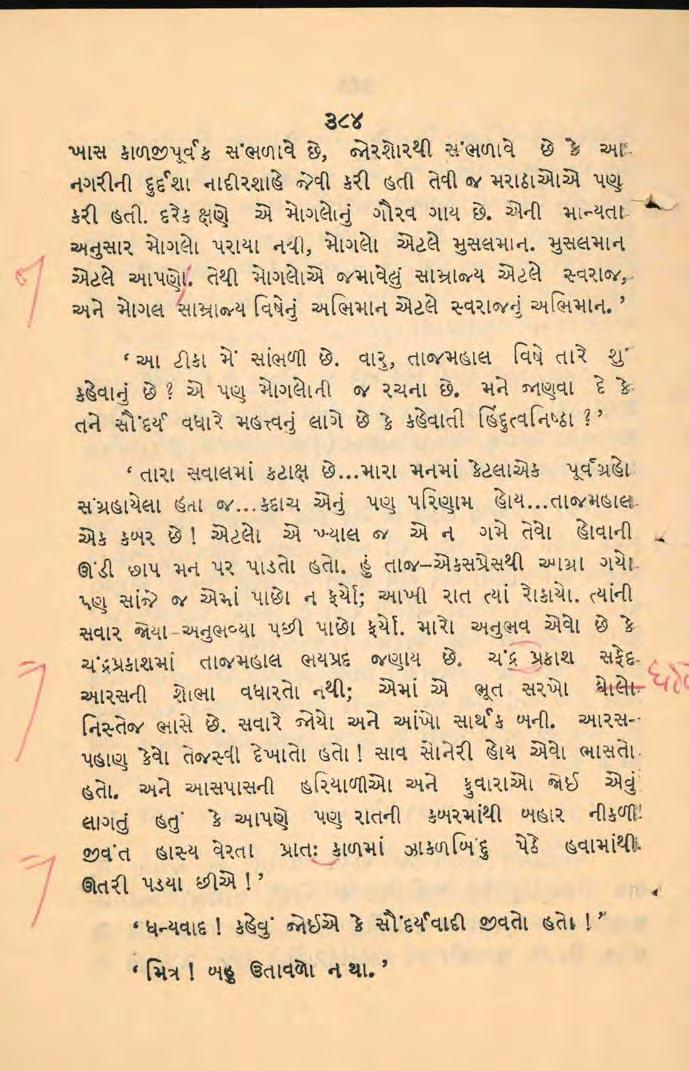 ૩૮૪
ખાસ કાળજીપૂર્વક સંભળાવે છે, જોરશોરથી સંભળાવે છે કે આ
નગરીની દુર્દશા નાદીરશાહે જેવી કરી હતી તેવી જ મરાઠાઓએ પણ
કરી હતી. દરેક ક્ષણે એ મોગલોનું ગૌરવ ગાય છે. એની માન્યતા
અનુસાર મોગલો પરાયા નથી, મોગલો એટલે મુસલમાન. મુસલમાન
એટલે આપણો. તેથી મોગલોએ જમાવેલું સામ્રાજ્ય એટલે સ્વરાજ,
અને મોગલ સામ્રાજ્ય વિષેનું અભિમાન એટલે સ્વરાજનું અભિમાન.’
‘આ ટીકા મેં સાંભળી છે. વારુ, તાજમહાલ વિષે તારે શું
કહેવાનું છે? એ પણ મોગલોની જ રચના છે. મને જાણવા દે કે
તને સૌંદર્ય વધારે મહત્ત્વનું લાગે છે કે કહેવાતી હિંદુત્વનિષ્ઠા?’
‘તારા સવાલમાં કટાક્ષ છે...મારા મનમાં કેટલાએક પૂર્વગ્રહો
સંગ્રહાયેલા હતા જ...કદાચ એનું પણ પરિણામ હોય...તાજમહાલ
એક કબર છે! એટલો એ ખ્યાલ જ એ ન ગમે તેવો હોવાની
ઊંડી છાપ મન પર પાડતો હતો. હું તાજ-એકસપ્રેસથી આગ્રા ગયો
પણ સાંજે જ એમાં પાછો ન ફર્યો; આખી રાત ત્યાં રોકાયો. ત્યાંની
સવાર જોયા-અનુભવ્યા પછી પાછો ફર્યો. મારો અનુભવ એવો છે કે
ચંદ્રપ્રકાશમાં તાજમહાલ ભયપ્રદ જણાય છે. ચંદ્ર પ્રકાશ સફેદ
આરસની શોભા વધારતો નથી; એમાં એ ભૂત સરખો ધોલો
નિસ્તેજ ભાસે છે. સવારે જોયો અને આંખો સાર્થક બની. આરસ-
પહાણ કેવો તેજસ્વી દેખાતો હતો! સાવ સોનેરી હોય એવો ભાસતો
હતો. અને આસપાસની હરિયાળીઓ અને ફુવારાઓ જોઈ એવું
લાગતું હતું કે આપણે પણ રાતની કબરમાંથી બહાર નીકળી
જીવંત હાસ્ય વેરતા પ્રાતઃ કાળમાં ઝાકળબિંદુ પેઠે હવામાંથી
ઊતરી પડયા છીએ!’
‘ધન્યવાદ! કહેવું જોઈએ કે સૌંદર્યવાદી જીવતો હતો!”
‘મિત્ર! બહુ ઉતાવળો ન થા.’